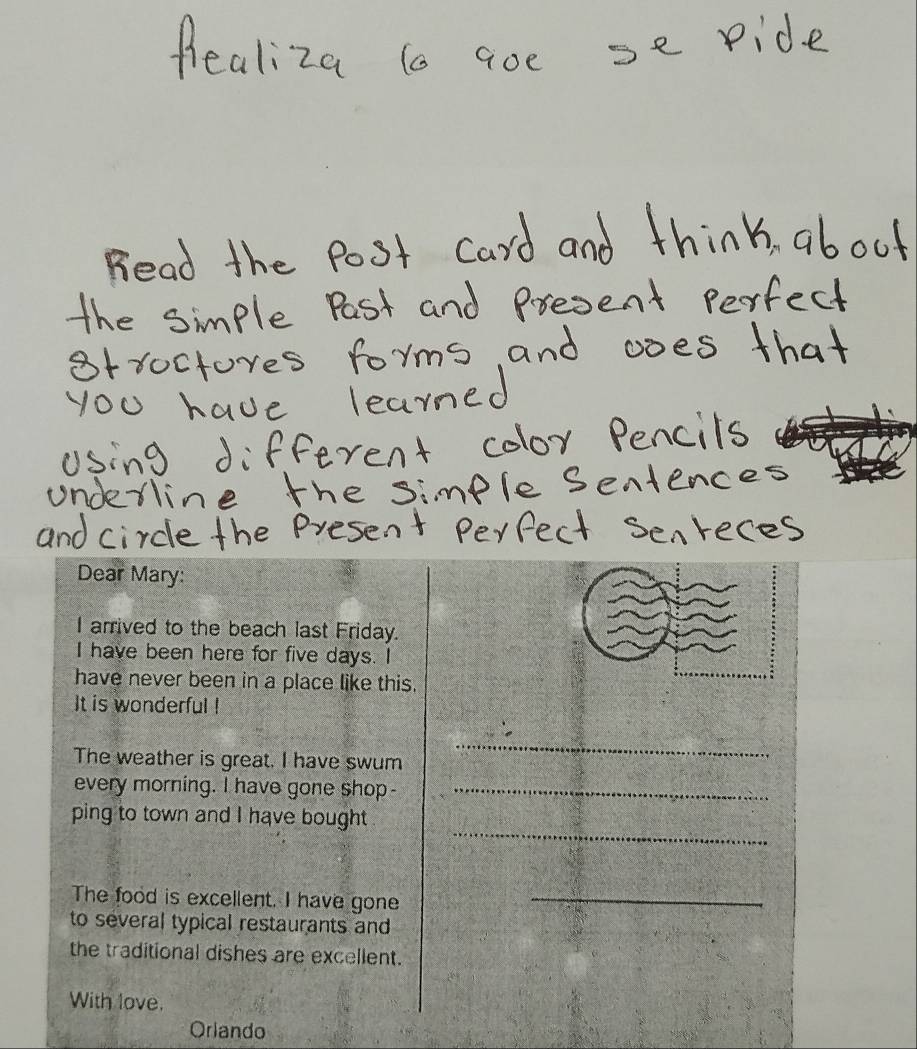 Realiza lo que se pide
Read the Post Card and think, about
the simple Past and Present Perfect
Structures forms, and uses that
you have learned
using different color Pencils
underline the simple Sentences
and circle the Present Perfect senteces
Dear Mary:
I arrived to the beach last Friday.
I have been here for five days. I
have never been in a place like this.
It is wonderful !
The weather is great. I have swum
every morning. I have gone shop-
ping to town and I have bought
The food is excellent. I have gone
to several typical restaurants and
the traditional dishes are excellent.
With love.
Orlando